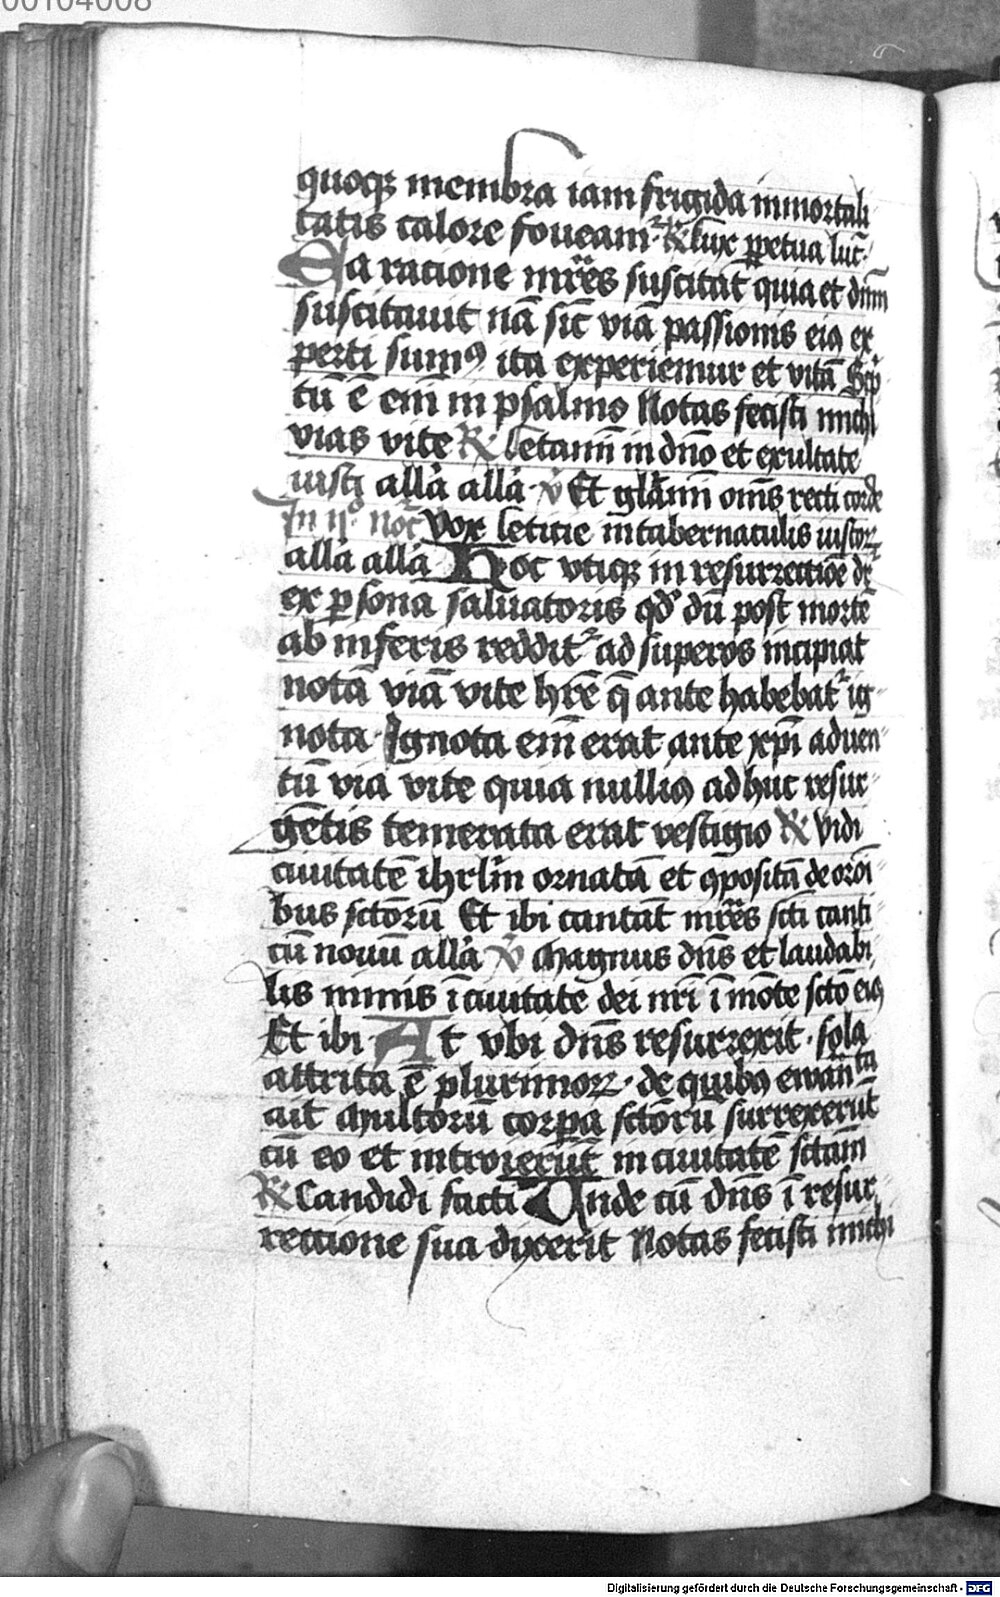 00104008
quoqꝫ membra iam frigida immortali
tatis calore foueam. ℟ Lux ꝑpetua luc̄.
Ea ratione mr̄es suscitat quia et dn̄m
suscitauit nā sic̄ viā passionis eiꝰ ex
perti sumꝰ ita experiemur et vitā Scͥp
tū ē em̄ in psalmo Notas fecisti michi
vias vite ℟ Letamī in dn̄o et exultate
iusti allā allā ℣ Et glām̄ om̄s recti corde
In ijº noc̄ Vox leticie in tabernaculis iustoꝝ
allā allā Hoc vtiqꝫ in resurrectiōe dr̄
ex ꝑsona saluatoris qd̓ dū post mortē
ab inferis reddit᷑ ad superos incipiat
notā viā vite hr̄e q̄ ante habebat᷑ ig
nota. Ignota em̄ erat ante xp̄i aduen
tū via vite quia nulliꝰ adhuc resur
gētis temerata erat vestigio ℟ Vidi
ciuitatē ihrlm̄ ornatā et ꝯpositā de orōi
bus sctōrū Et ibi cantāt mr̄es scti canti
cū nouū allā ℣ Magnus dn̄s et laudabi
lis nimis ī ciuitate dei nr̄i ī mōte sctō eiꝰ
Et ibi At vbi dn̄s resurrexit. sola
attrita ē plurimoꝝ. de quibꝰ ewan̄ta
ait Multorū corꝑa sctōrū surrexerūt
cū eo et introierūt in ciuitatē sctām
℟ Candidi facti Unde cū dn̄s ī resur
rectione sua dixerit Notas fecisti michi
Digitalisierung gefördert durch die Deutsche Forschungsgemeinschaft - DFG